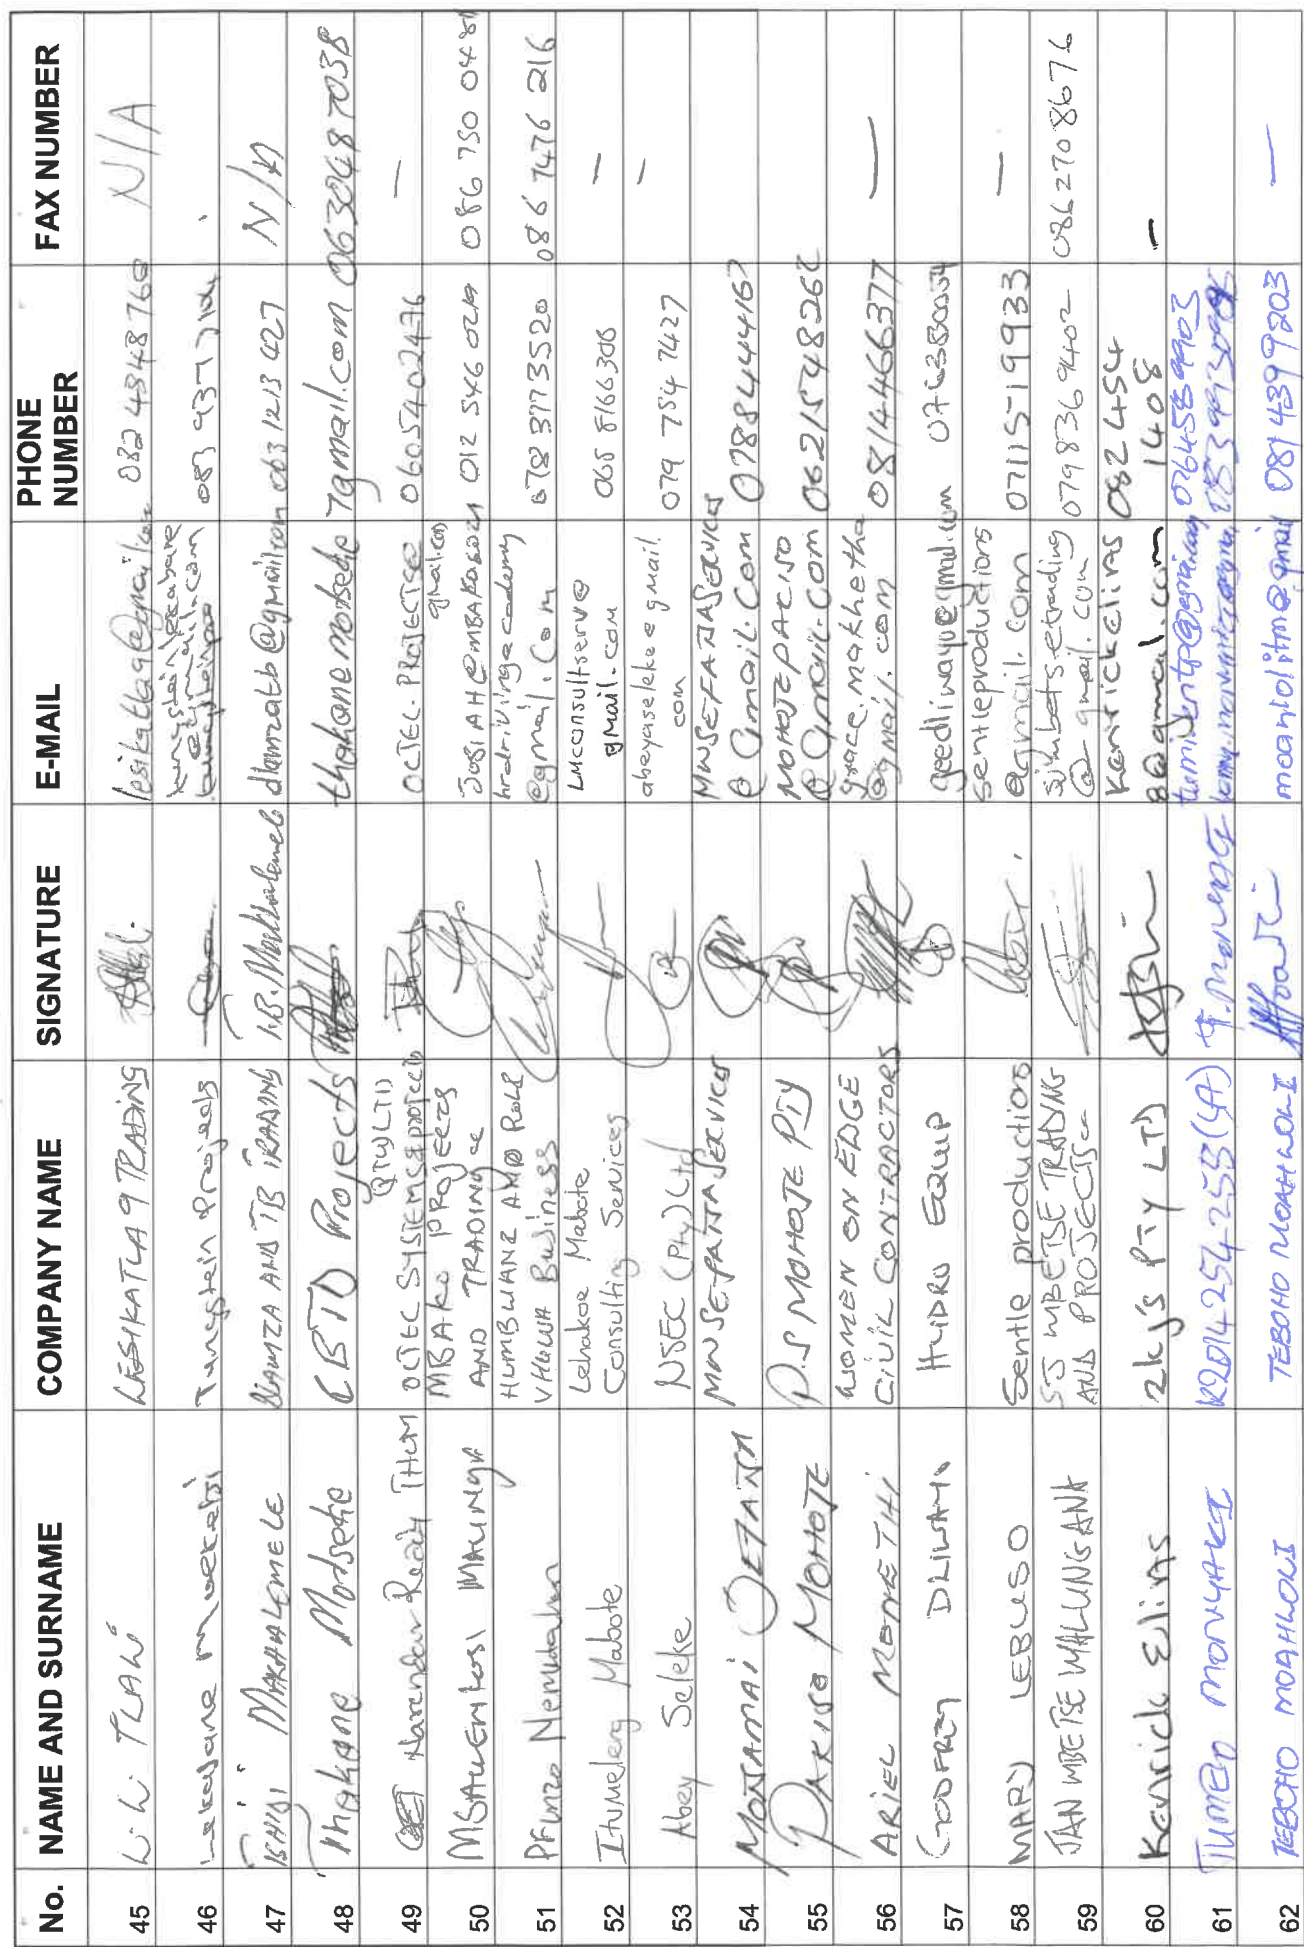 No. NAME AND SURNAME COMPANY NAME SIGNATURE E-MAIL PHONE NUMBER FAX NUMBER
45 L.L. TLALE LESIKATLAG TRADING 082 4348 760 N/A
46 Tungstein Projects 083 937 7104
47 TSHIDI MAKHALEMELE DIAMZA AND TB TRADING T.B. Makhalemele diamzatb@gmail.com 063 1213 427 N/A
48 Thakane Motseke CBTD Projects thakanemotseke7@gmail.com 0630487038
49 Narandan Reddy THUM OCTEC SYSTEMS & PROJECTS (PTY) LTD OCTEC.PROJECTS@gmail.com 0605402476 —
50 MALINGA MBAKO PROJECTS AND TRADING cc JOSIAH@MBAKO.CO.ZA 012 546 0219 086 750 0480
51 Pfunzo Nemudahni HUMBULANI AND ROLE VHUWA Business hrdrivingacademy@gmail.com 078 3773520 086 7476 216
52 Itumeleng Mabote Lehakoe Mabote Consulting Services LMconsultserv@gmail.com 065 8166308 —
53 Abey Seleke NJEC (Pty) Ltd abeyaseleke@gmail.com 079 754 7427 —
54 MOTJAMAI SEFANTA MWSEFATJASERVICES MWSEFATJASERVICES@Gmail.Com 0788444167
55 PAKISO MOHOTE P.S MOHOTE PTY MOHOTEPACISO@Gmail.Com 0621548262
56 ARIEL MONETHI WOMEN ON EDGE CIVIL CONTRACTORS grace.makhetha@gmail.com 0814466377 —
57 GODFREY DLIWAYO HUIDRO EQUIP geedliwayo@gmail.com 0763800054
58 MARY LEBUSO Sentle productions sentleproductions@gmail.com 071 15-19933 —
59 JAN MBETSE MALUNGANA SJ MBETSE TRADING AND PROJECTS cc sjmbetsetrading@gmail.com 0798369402 0862708676
60 Kenrick Elias 2kj's PTY LTD kenrickelias8@gmail.com 082 454 1408 —
61 TUMELO MONYAKE K2014254255(SA) T. MONYAKE tumientp@gmail.com 0764589903
62 TEBOHO MOAHLOLI TEBOHO MOAHLOLI moahlolitm@gmail 0814399203 —